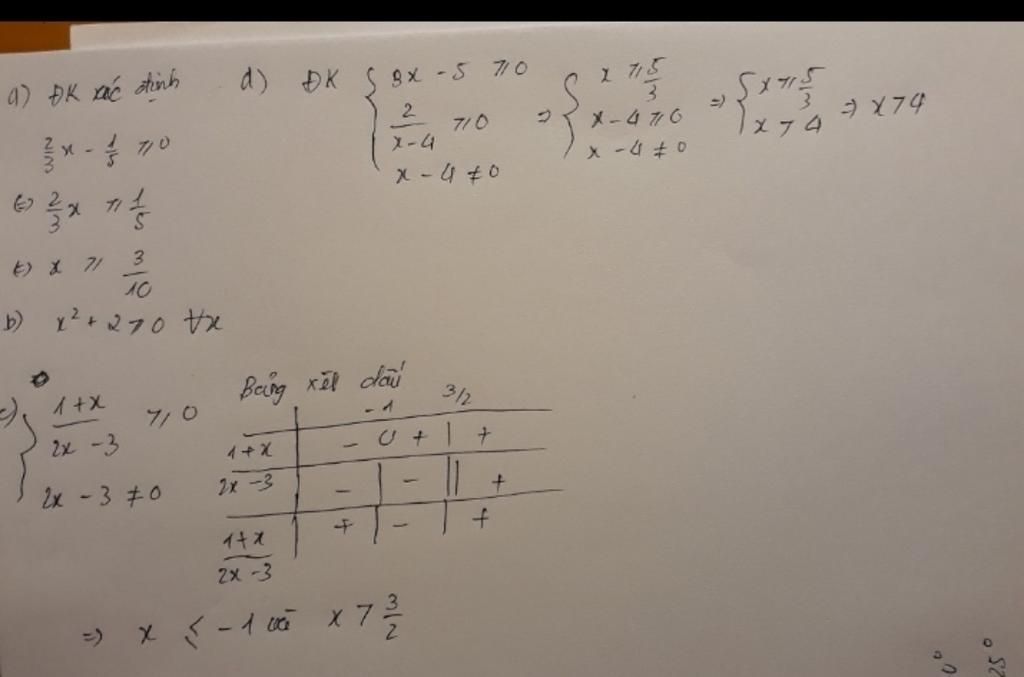 a) ĐK xác định
2/3 x - 1/5 ≥ 0
⇔ 2/3 x ≥ 1/5
⇔ x ≥ 3/10
b) x² + 2 > 0 ∀x
c) { (1+x)/(2x-3) ≥ 0
2x - 3 ≠ 0
Bảng xét dấu
-1 3/2
1+x | - 0 + | +
2x-3 | - | - || +
(1+x)/(2x-3) | + | - | +
⇒ x ≤ -1 và x > 3/2
d) ĐK { 3x - 5 ≥ 0
2/(x-4) ≥ 0
x - 4 ≠ 0
⇒ { x ≥ 5/3
x - 4 ≥ 0
x - 4 ≠ 0
⇒ { x ≥ 5/3
x > 4
⇒ x > 4
25°